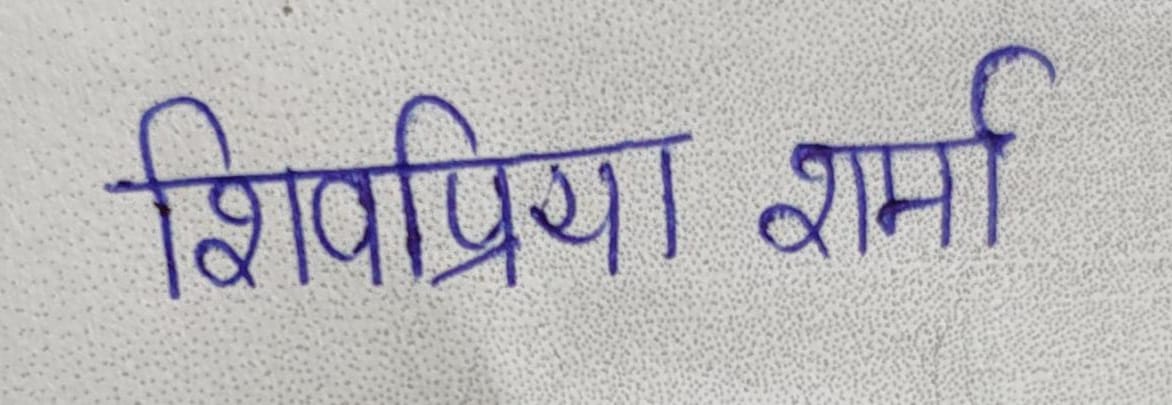 शिवप्रिया शर्मा